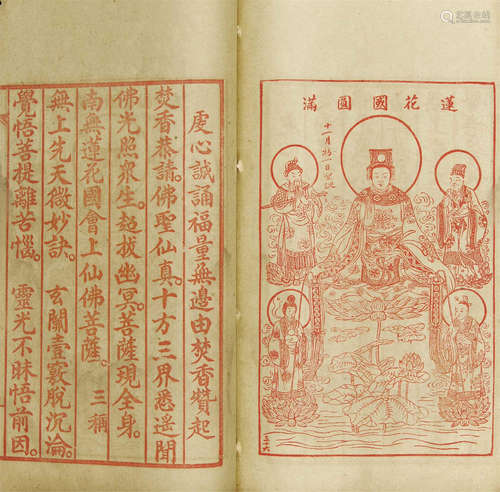 蓮花國圓滿
十一月初一日
虔心誠誦福量無邊由焚香讚起
焚香恭請。佛聖仙真。十方三界悉遙聞
佛光照眾生。超拔幽冥。菩薩現全身。
南無蓮花國會上仙佛菩薩。 三稱
無上先天微妙訣。 玄關壹竅脫沉淪。
覺悟菩提離苦惱。 靈光不昧悟前因。